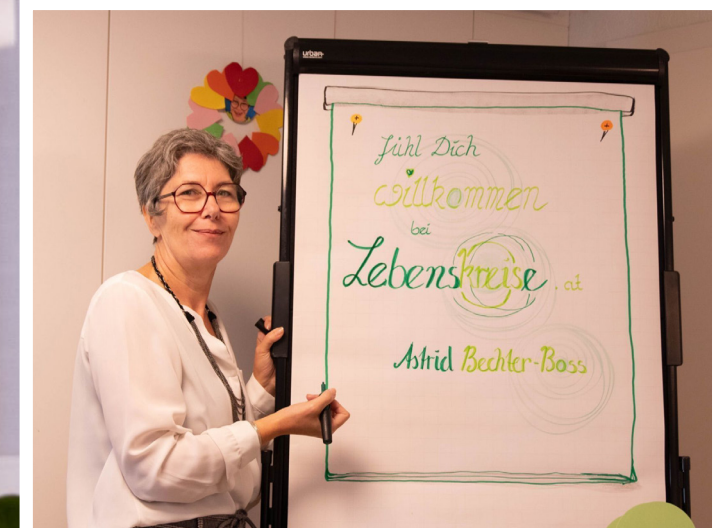 urban
fühl Dich
willkommen
bei
Lebenskreise.at
Astrid Bechter-Boss